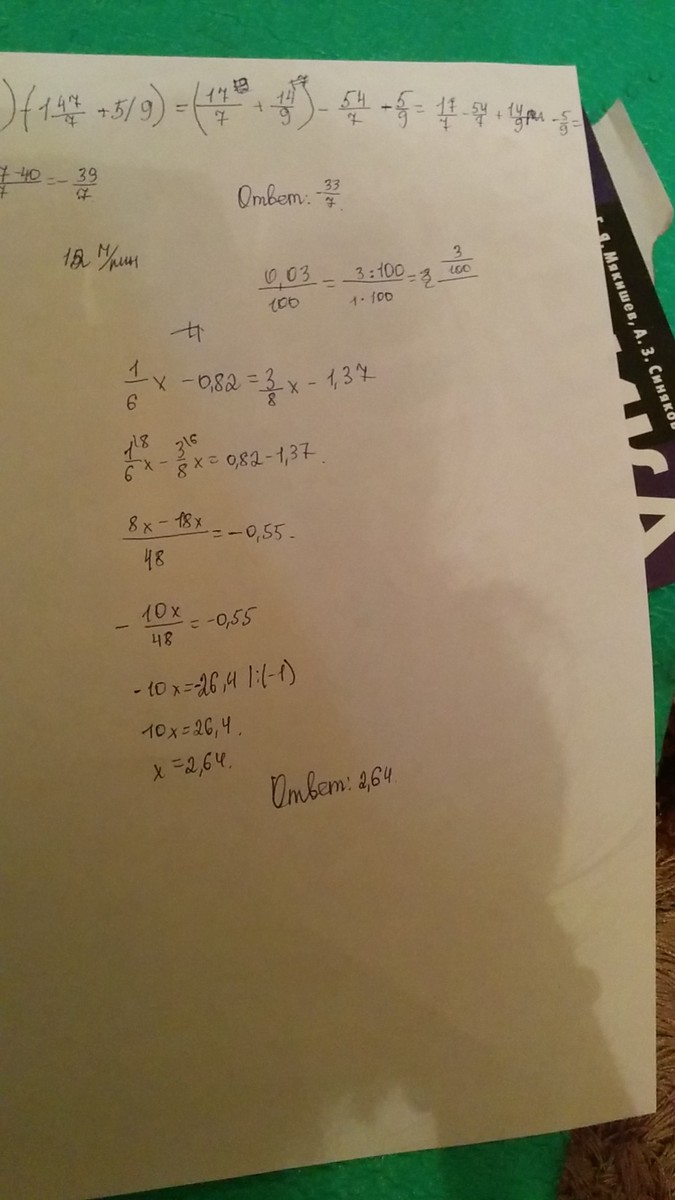 ) - (1 47/7 + 5/9) = (17/7 + 14/9) - 54/7 + 5/9 = 17/7 - 54/7 + 14/9 - 5/9 =
7-40/7 = - 39/7
Ответ: -33/7.
м/мин
0,03/100 = 3:100/1·100 = 3/100
1/6 x - 0,82 = 3/8 x - 1,37
1\8/6 x - 3\6/8 x = 0,82 - 1,37.
8x - 18x/48 = - 0,55.
- 10x/48 = -0,55
-10x = -26,4 |:(-1)
10x = 26,4.
x = 2,64.
Ответ: 2,64.
Г. Я. Мякишев, А. З. Синяков